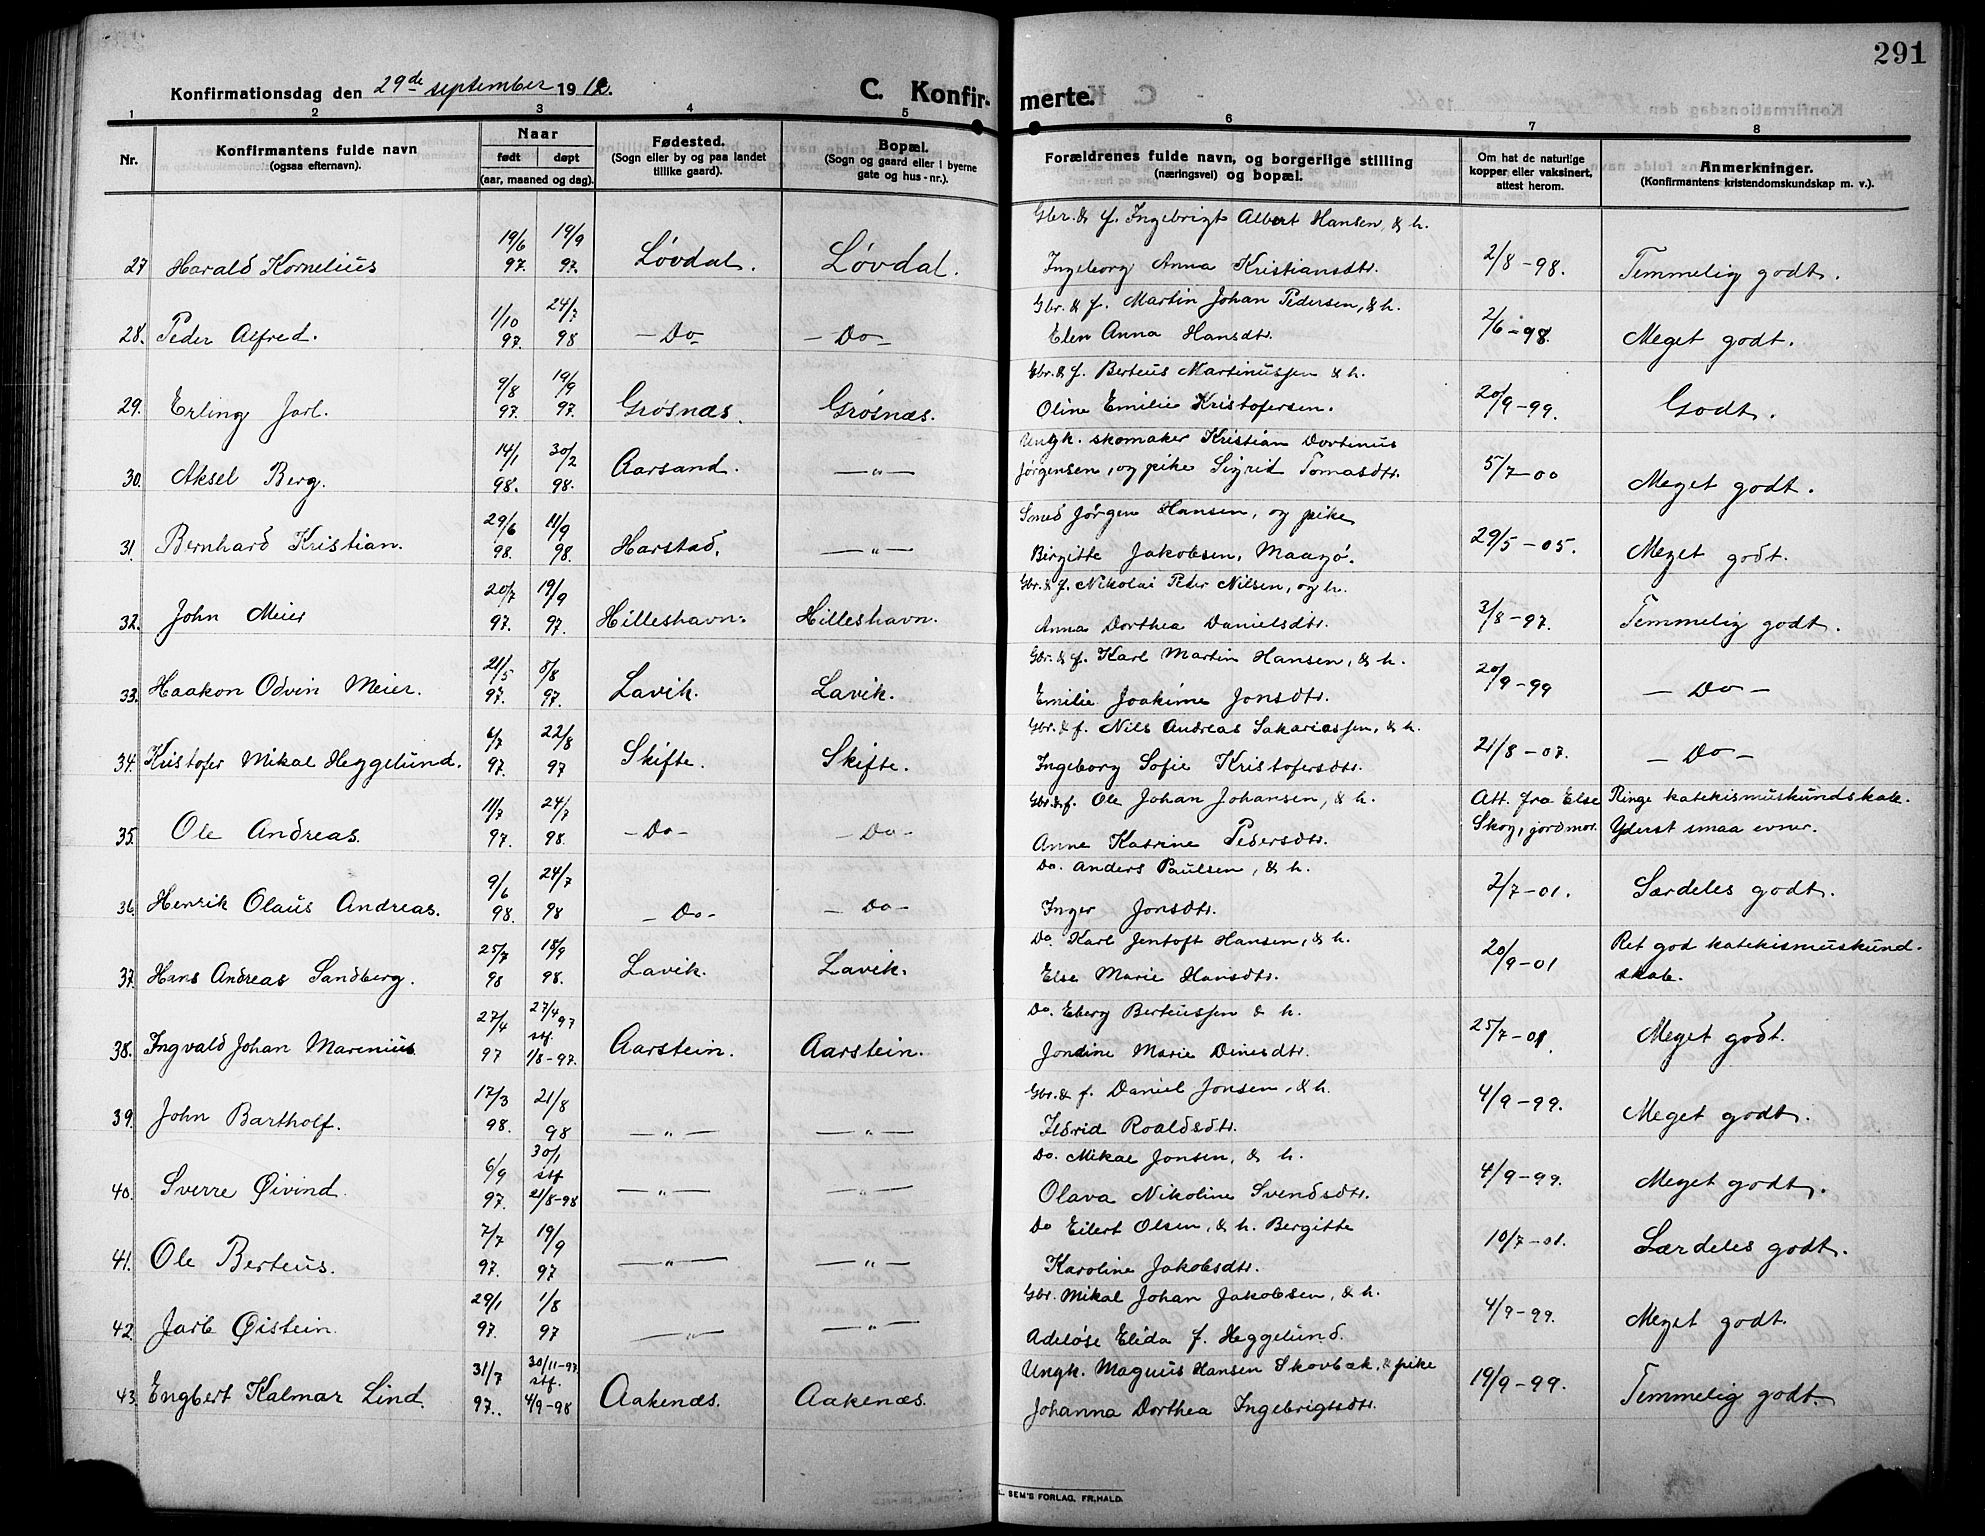 291
Konfirmationsdag den 29de september 1912.
C. Konfirmerte.
1 2 3 4 5 6 7 8
Nr.
Konfirmantens fulde navn
(ogsaa efternavn).
Naar
født døpt
(aar, maaned og dag).
Fødested.
(Sogn eller by og paa landet
tillike gaard).
Bopæl.
(Sogn og gaard eller i byerne
gate og hus-nr.).
Forældrenes fulde navn, og borgerlige stilling
(næringsvei) og bopæl.
Om hat de naturlige
kopper eller vaksinert,
attest herom.
Anmerkninger.
(Konfirmantens kristendomskundskap m. v.).
Gbr. & f. Ingebrigt Albert Hansen, & h.
27 Harald Kornelius 19/6 97. 19/9 97. Løvdal. Løvdal. Ingeborg Anna Kristiansdtr. 2/8-98. Temmelig godt.
Gbr. & f. Martin Johan Pedersen, & h.
28. Peder Alfred. 1/10 97. 24/7 98 -Do- -Do- Elen Anna Hansdtr. 2/6-98. Meget godt.
Gbr. & f. Berteus Martinussen & h.
29. Erling Jarl. 9/8 97. 19/9 97. Grøsnæs. Grøsnæs. Oline Emilie Kristofersen. 20/9-99. Godt.
Ungk. skomaker Kristian Dortinus
30. Aksel Berg. 14/1 98. 30/2 98. Aarsand. -"- Jørgensen, og pike Sigrid Tomasdtr. 5/7-00 Meget godt.
Smed Jørgen Hansen, og pike
31. Bernhard Kristian. 29/6 98. 11/9 98. Harstad. -"- Birgitte Jakobsen, Maagø. 29/5-05. Meget godt.
Gbr. & f. Nikolai Peder Nilsen, og h.
32. John Meier 20/7 97. 19/9 97. Hilleshavn. Hilleshavn. Anna Dorthea Danielsdtr. 3/8-97. Temmelig godt.
Gbr. & f. Karl Martin Hansen, & h.
33. Haakon Odvin Meier. 21/5 97. 8/8 97. Lavik. Lavik. Emilie Joakime Jonsdtr. 20/9-99 -Do-
Gbr. & f. Nils Andreas Sakariassen, & h.
34. Kristofer Mikal Heggelund. 6/7 97. 22/8 97 Skifte. Skifte. Ingeborg Sofie Kristofersdtr. 21/8-07. -Do-
Gbr. & f. Ole Johan Johansen, & h. Att. fra Else Ringe katekismuskundskab.
35. Ole Andreas. 11/7 97. 24/7 98. -Do- -Do- Anne Katrine Pedersdtr. Skog, jordmor. Yderst smaa evner.
Do. Anders Paulsen, & h.
36. Henrik Olaus Andreas. 9/6 98. 24/7 98 -Do- -Do- Inger Jonsdtr. 2/7-01. Særdeles godt.
Do. Karl Jentoft Hansen, & h. Ret god katekismuskund-
37. Hans Andreas Sandberg. 25/7 98 18/9 98. Lavik. Lavik. Else Marie Hansdtr. 20/9-01 skab.
Do. Eberg Berteussen & h.
38. Ingvald Johan Marenius 27/4 97 27/4 97 stf. 1/8-97. Aarstein. Aarstein. Jondine Marie Dinesdtr. 25/7-01. Meget godt.
Gbr. & f. Daniel Jonsen, & h.
39. John Bartholf. 17/3 98. 21/8 98 -"- -"- Ildrid Roaldsdtr. 4/9-99. Meget godt.
Do. Mikal Jonsen, & h.
40. Sverre Øivind. 6/9 97. 30/1 stf 21/8-98 -"- -"- Olava Nikoline Svendsdtr. 4/9-99. Meget godt.
Do Eilert Olsen, & h. Bergitte
41. Ole Berteus. 7/7 97. 19/9 97 -"- -"- Karoline Jakobsdtr. 10/7-01. Særdeles godt.
Gbr. Mikal Johan Jakobsen, & h.
42. Jarle Øistein. 29/1 97. 1/8 97 -"- -"- Adeløse Elida f. Heggelund. 4/9-99. Meget godt.
Ungk. Magnus Hansen Skovbak, & pike
43. Engbert Kalmar Lind 31/7 97. 30/11-97. stf. 4/9-98 Aakenæs. Aakenæs. Johanna Dorthea Ingebrigtsdtr. 19/9-99. Temmelig godt.
SEM'S FORLAG, FR.HALD.